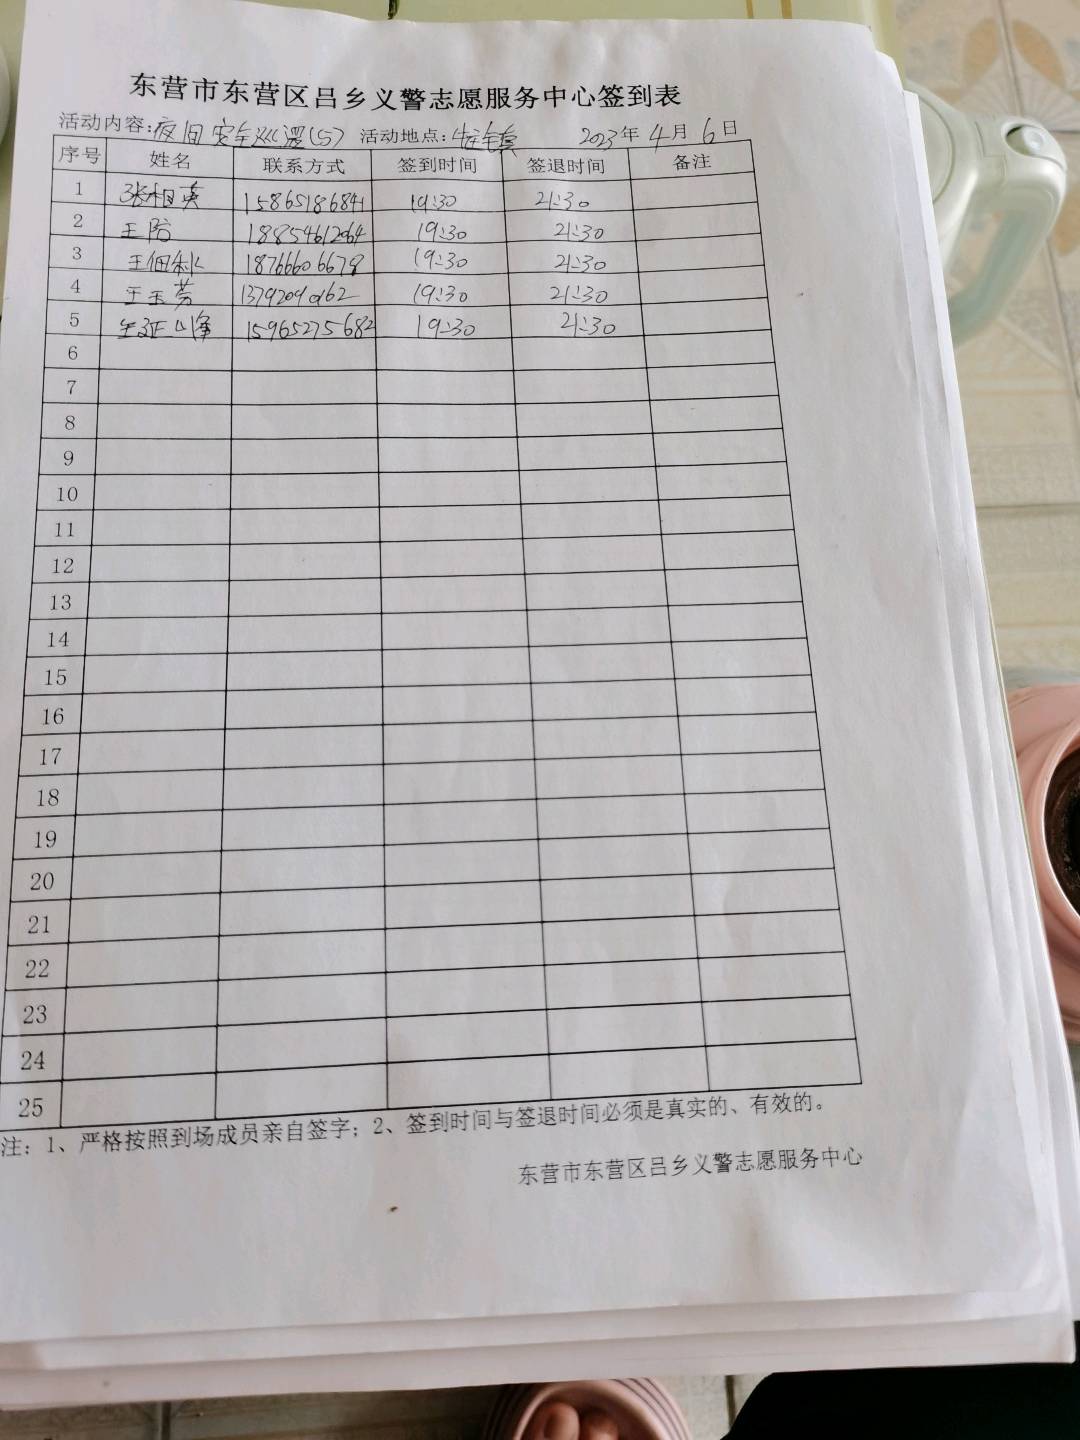 东营市东营区吕乡义警志愿服务中心签到表
活动内容:夜间安全巡逻(5) 活动地点: 2023年4月6日
序号 姓名 联系方式 签到时间 签退时间 备注
1 张相英 15865186841 19:30 21:30
2 王 18854612064 19:30 21:30
3 王佃秋 18766606678 19:30 21:30
4 王玉芳 13792090162 19:30 21:30
5 15965275682 19:30 21:30
6
7
8
9
10
11
12
13
14
15
16
17
18
19
20
21
22
23
24
25
注：1、严格按照到场成员亲自签字；2、签到时间与签退时间必须是真实的、有效的。
东营市东营区吕乡义警志愿服务中心